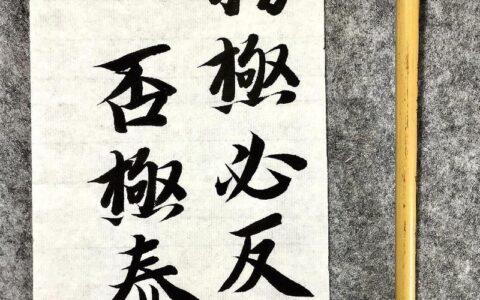 物極必反
否極泰